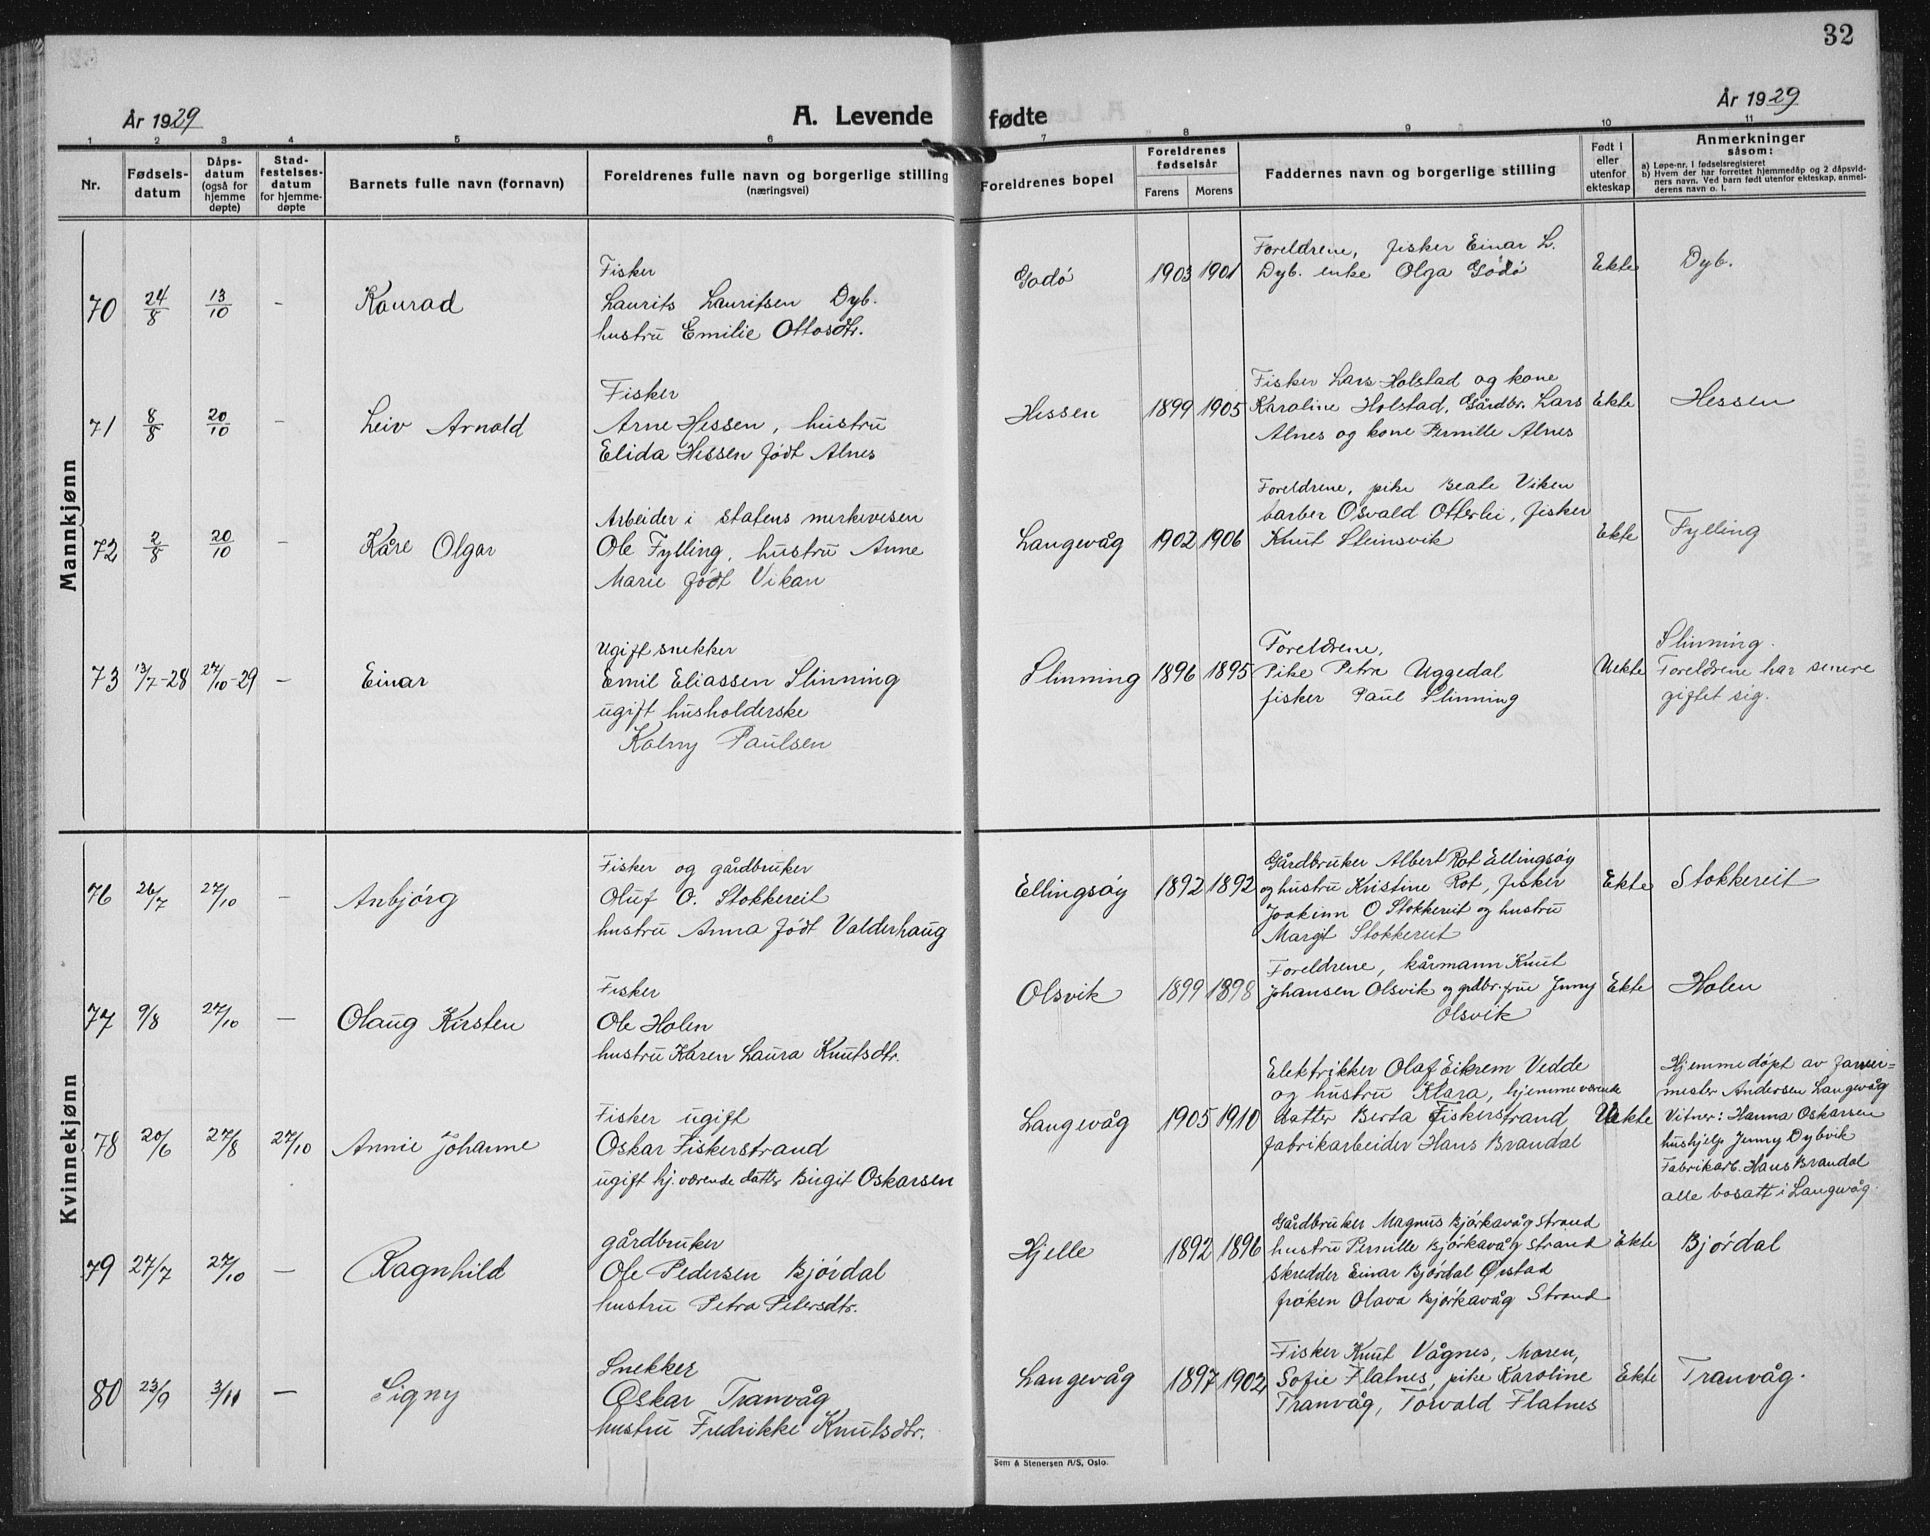 32
År 1929
A. Levende fødte
År 1929
1 2 3 4 5 6 7 8 9 10 11
Nr.
Fødsels-
datum
Dåps-
datum
(også for
hjemme
døpte)
Stad-
festelses-
datum
for hjemme-
døpte
Barnets fulle navn (fornavn)
Foreldrenes fulle navn og borgerlige stilling
(næringsvei)
Foreldrenes bopel
Foreldrenes
fødselsår
Farens Morens
Faddernes navn og borgerlige stilling
Født i
eller
utenfor
ekteskap
Anmerkninger
såsom:
a) Løpe-nr. i fødselsregisteret
b) Hvem der har forrettet hjemmedåp og 2 dåpsvid-
ners navn. Ved barn født utenfor ekteskap, anmel-
derens navn o. l.
Mannkjønn
70 24/8 13/10 - Konrad
Fisker
Laurits Lauritsen Dyb.
hustru Emilie Ottosdtr.
Godø 1903 1901
Foreldrene, fisker Einar L.
Dyb. enke Olga Godø
Ekte Dyb.
71 8/8 20/10 - Leiv Arnold
Fisker
Arne Hessen, hustru
Elida Hessen født Alnes
Hessen 1899 1905
Fisker Lars Holstad og kone
Karoline Holstad, Gårdbr. Lars
Alnes og kone Pernille Alnes
Ekte Hessen
72 2/8 20/10 - Kåre Olgar
Arbeider i statens merkevesen
Ole Fylling, hustru Anne
Marie født Vikan
Langevåg 1902 1906
Foreldrene, pike Beate Viken
barber Osvald Otterlei, fisker
Knut Steinsvik
Ekte Fylling
73 13/7-28 27/10-29 - Einar
Ugift snekker
Emil Eliassen Slinning
ugift husholderske
Kolny Paulsen
Slinning 1896 1895
Foreldrene,
Pike Petra Uggedal
fisker Paul Slinning
Uekte
Slinning.
Foreldrene har senere
giftet sig.
Kvinnekjønn
76 26/7 27/10 - Anbjørg
Fisker og gårdbruker
Oluf O. Stokkereit
hustru Anna født Valderhaug
Ellingsøy 1892 1892
Gårdbruker Albert Rot Ellingsøy
og hustru Kristine Rot, fisker
Joakim O Stokkereit og hustru
Margit Stokkereit
Ekte Stokkereit
77 9/8 27/10 - Olaug Kirsten
Fisker
Ole Holen
hustru Karen Laura Knutsdtr.
Olsvik 1899 1898
Foreldrene, kårmann Knut
Johansen Olsvik og grdbr. frue Jenny
Olsvik
Ekte Holen
78 20/6 27/8 27/10 Annie Johanne
Fisker ugift
Oskar Fiskerstrand
ugift hj. værende datter Birgit Oskarsen
Langevåg 1905 1910
Elektrikker Olaf Eikrem Vedde
og hustru Klara, hjemmeværende
datter Berta Fiskerstrand,
fabrikarbeider Hans Brandal
Uekte
Hjemmedøpt av farver-
mester Andersen Langevåg
Vitner: Hanna Oskarsen
hushjelp Jenny Dybvik
Fabrikarb. Hans Brandal
alle bosatt i Langevåg.
79 27/7 27/10 - Ragnhild
gårdbruker
Ole Pedersen Bjørdal
hustru Petra Petersdtr.
Hjelle 1892 1896
Gårdbruker Magnus Bjørkavåg Strand
hustru Pernille Bjørkavåg Strand
skredder Einar Bjørdal Ørstad
frøken Olava Bjørkavåg Strand
Ekte Bjørdal
80 23/9 3/11 - Signy
Snekker
Oskar Tranvåg
hustru Fredrikke Knutsdtr.
Langevåg 1897 1902
Fisker Knut Vågnes, Maren,
Sofie Flatnes, pike Karoline
Tranvåg, Torvald Flatnes
Ekte Tranvåg.
Sem & Stenersen A/S, Oslo.